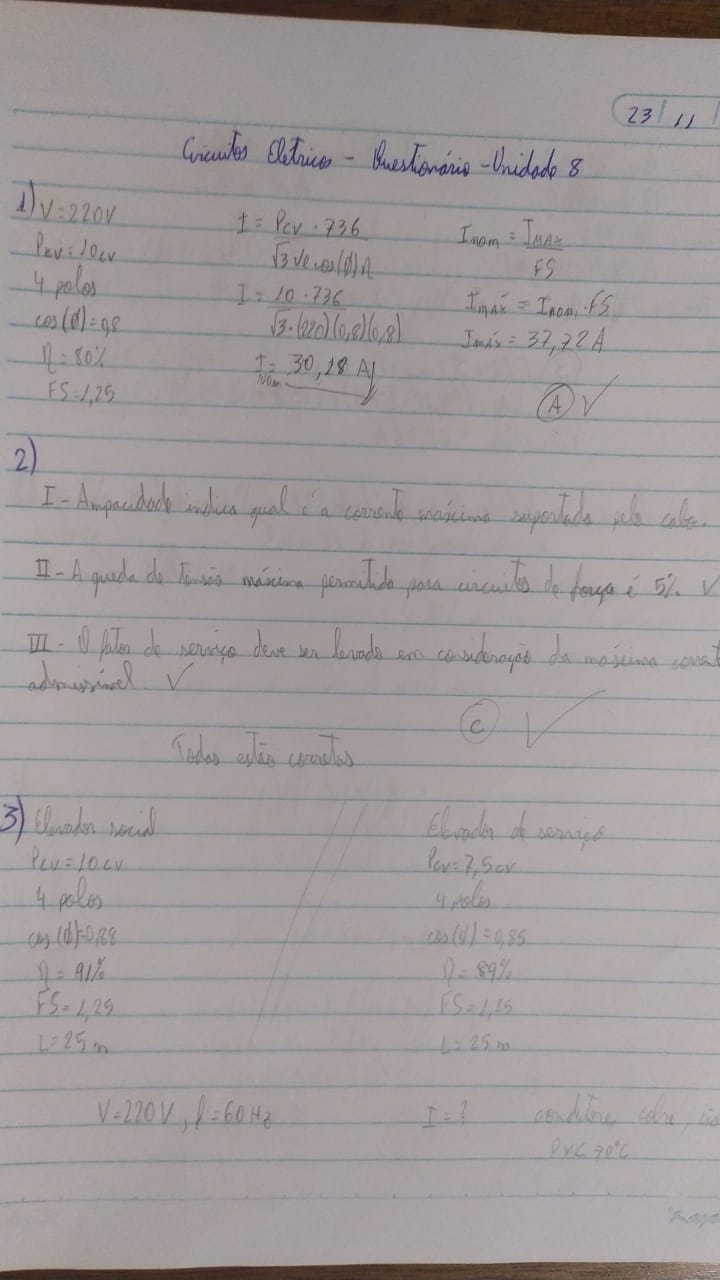 23/11
Circuitos Elétricos - Questionário - Unidade 8
1) V=220V
Pcv=10cv
4 polos
cos(ϕ)=0,8
η=80%
FS=1,25
I = Pcv . 736
√3 Ve cos(ϕ) η
I = 10 . 736
√3.(220)(0,8)(0,8)
Inom = 30,18 A
Inom = IMAX
FS
Imáx = Inom . FS
Imáx = 37,72 A
(A) ✓
2)
I - Ampacidade indica qual é a corrente máxima suportada pelo cabo.
II - A queda de tensão máxima permitida para circuitos de força é 5%. ✓
III - O fator de serviço deve ser levado em consideração da máxima
admissível ✓
(C) ✓
Todas estão corretas
3) Elevador social
Pcv=10cv
4 polos
cos(ϕ)=0,88
η=91%
FS=1,25
L=25m
Elevador de serviço
Pcv=7,5cv
4 polos
cos(ϕ)=0,85
η=89%
FS=1,25
L=25m
V=220V, f=60Hz I=? cobre,
PVC 70°C